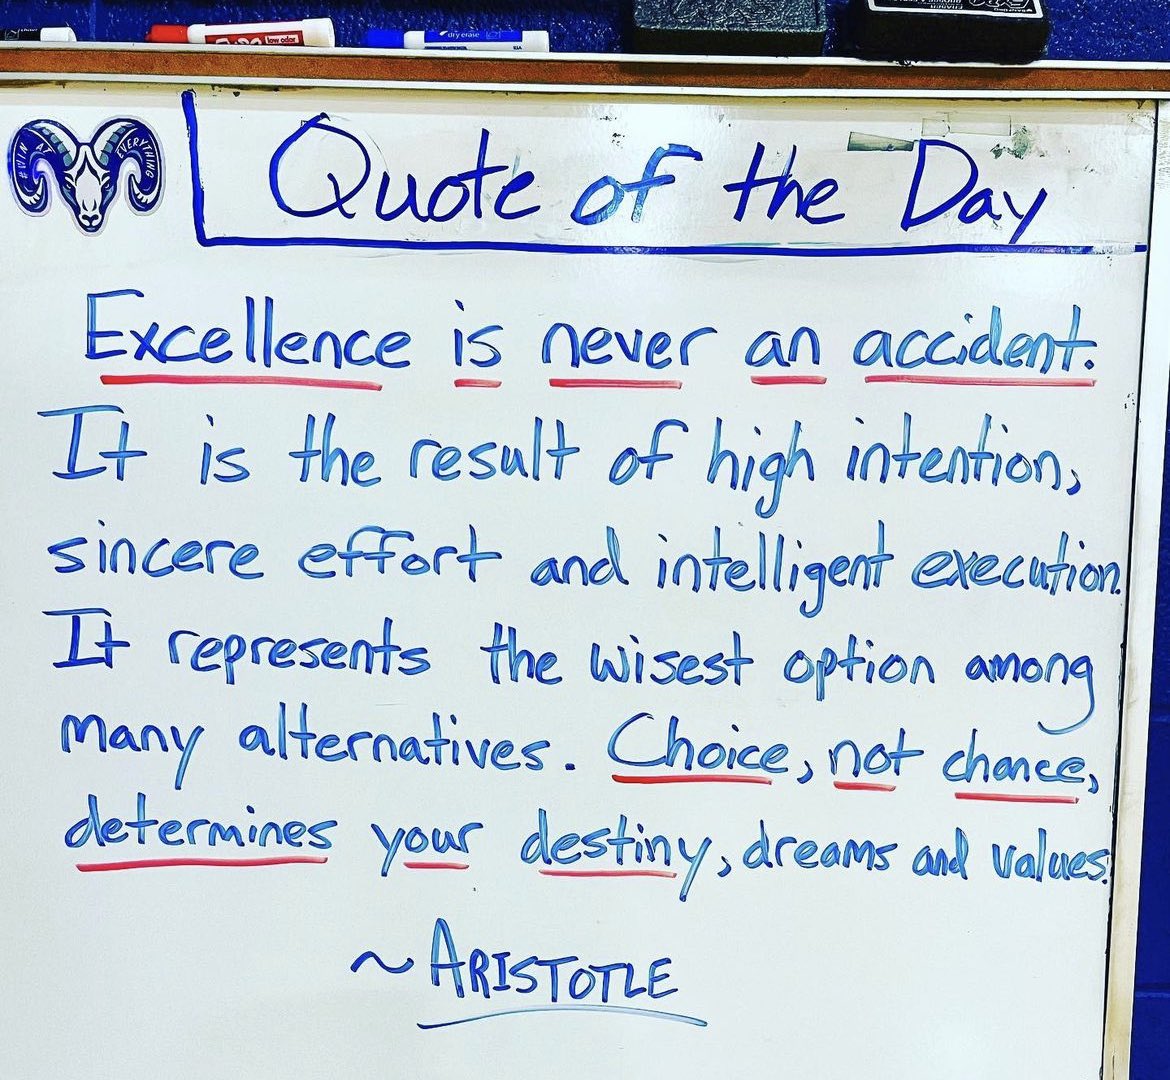 low odor
dry erase
#WIN AT EVERYTHING
Quote of the Day
Excellence is never an accident.
It is the result of high intention,
sincere effort and intelligent execution.
It represents the wisest option among
many alternatives. Choice, not chance,
determines your destiny, dreams and values.
~ARISTOTLE